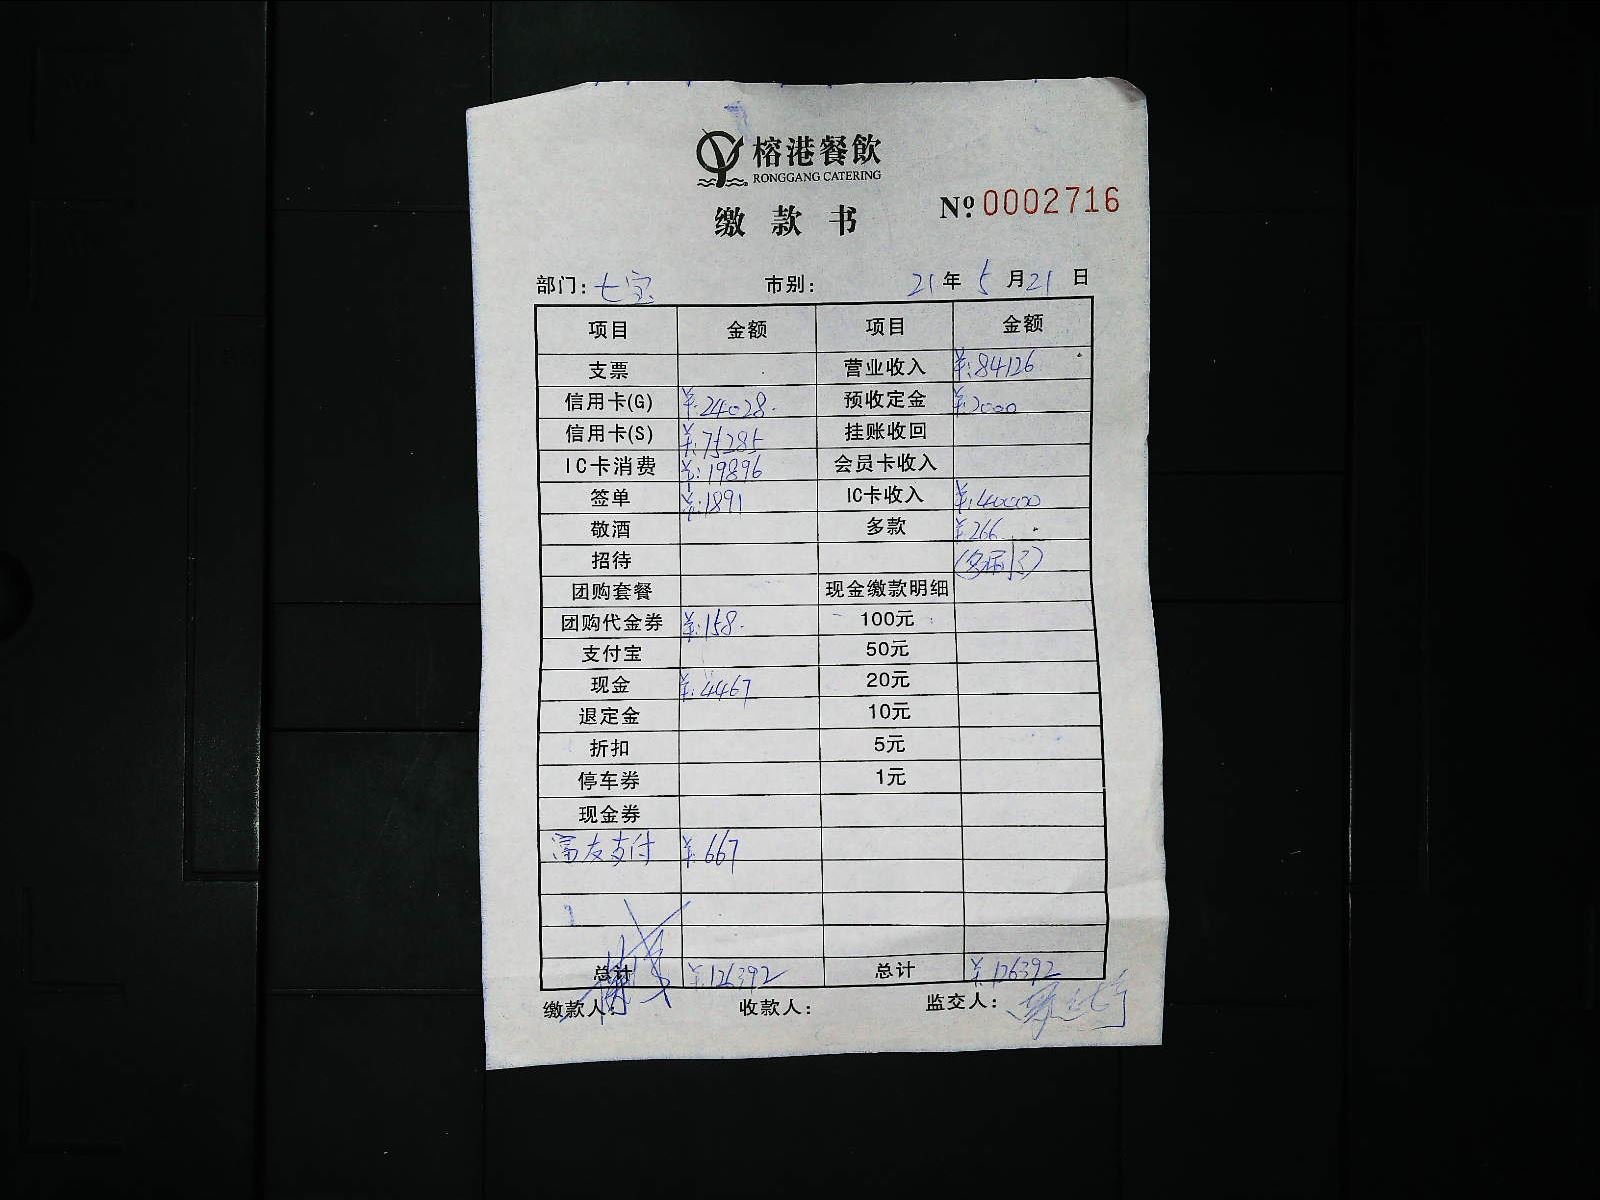 榕港餐飲
RONGGANG CATERING
缴款书
№ 0002716
部门: 七宝 市别: 21年 5月21日
项目 金额 项目 金额
支票 营业收入 ¥:84126
信用卡(G) ¥:24028. 预收定金 ¥:2000
信用卡(S) ¥:75285 挂账收回
IC卡消费 ¥:19896 会员卡收入
签单 ¥:1891 IC卡收入 ¥:40000
敬酒 多款 ¥266
招待
团购套餐 现金缴款明细
团购代金券 ¥:158. 100元
支付宝 50元
现金 ¥:4467 20元
退定金 10元
折扣 5元
停车券 1元
现金券
富友支付 ¥:667
总计 ¥:126392 总计 ¥:126392
缴款人: 收款人: 监交人: